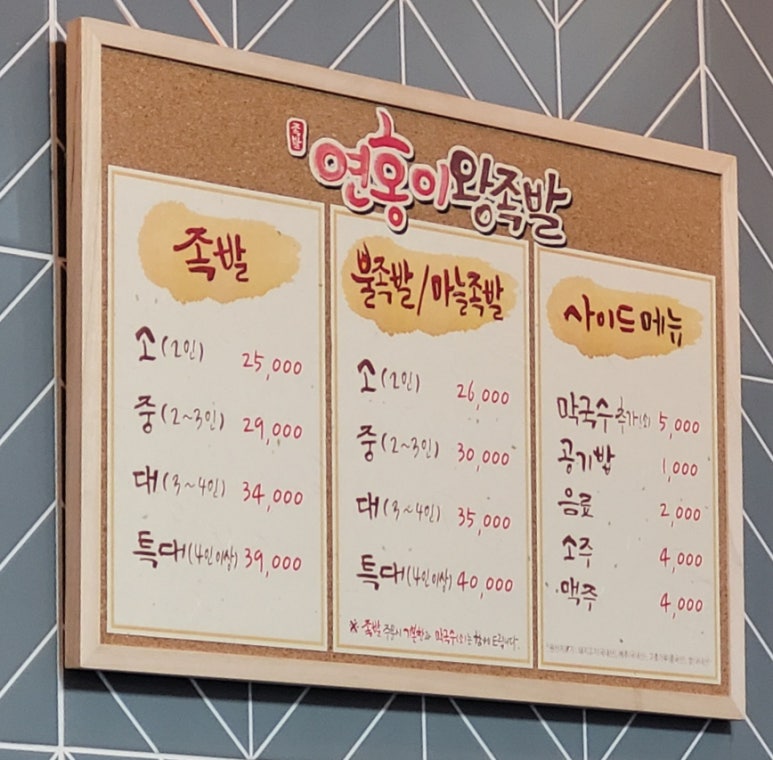 족발
연홍이왕족발
족발
소(2인) 25,000
중(2~3인) 29,000
대(3~4인) 34,000
특대(4인이상) 39,000
불족발/마늘족발
소(2인) 26,000
중(2~3인) 30,000
대(3~4인) 35,000
특대(4인이상) 40,000
※ 족발 주문시 막국수(소)는 함께 드립니다.
사이드메뉴
막국수추가(소) 5,000
공기밥 1,000
음료 2,000
소주 4,000
맥주 4,000